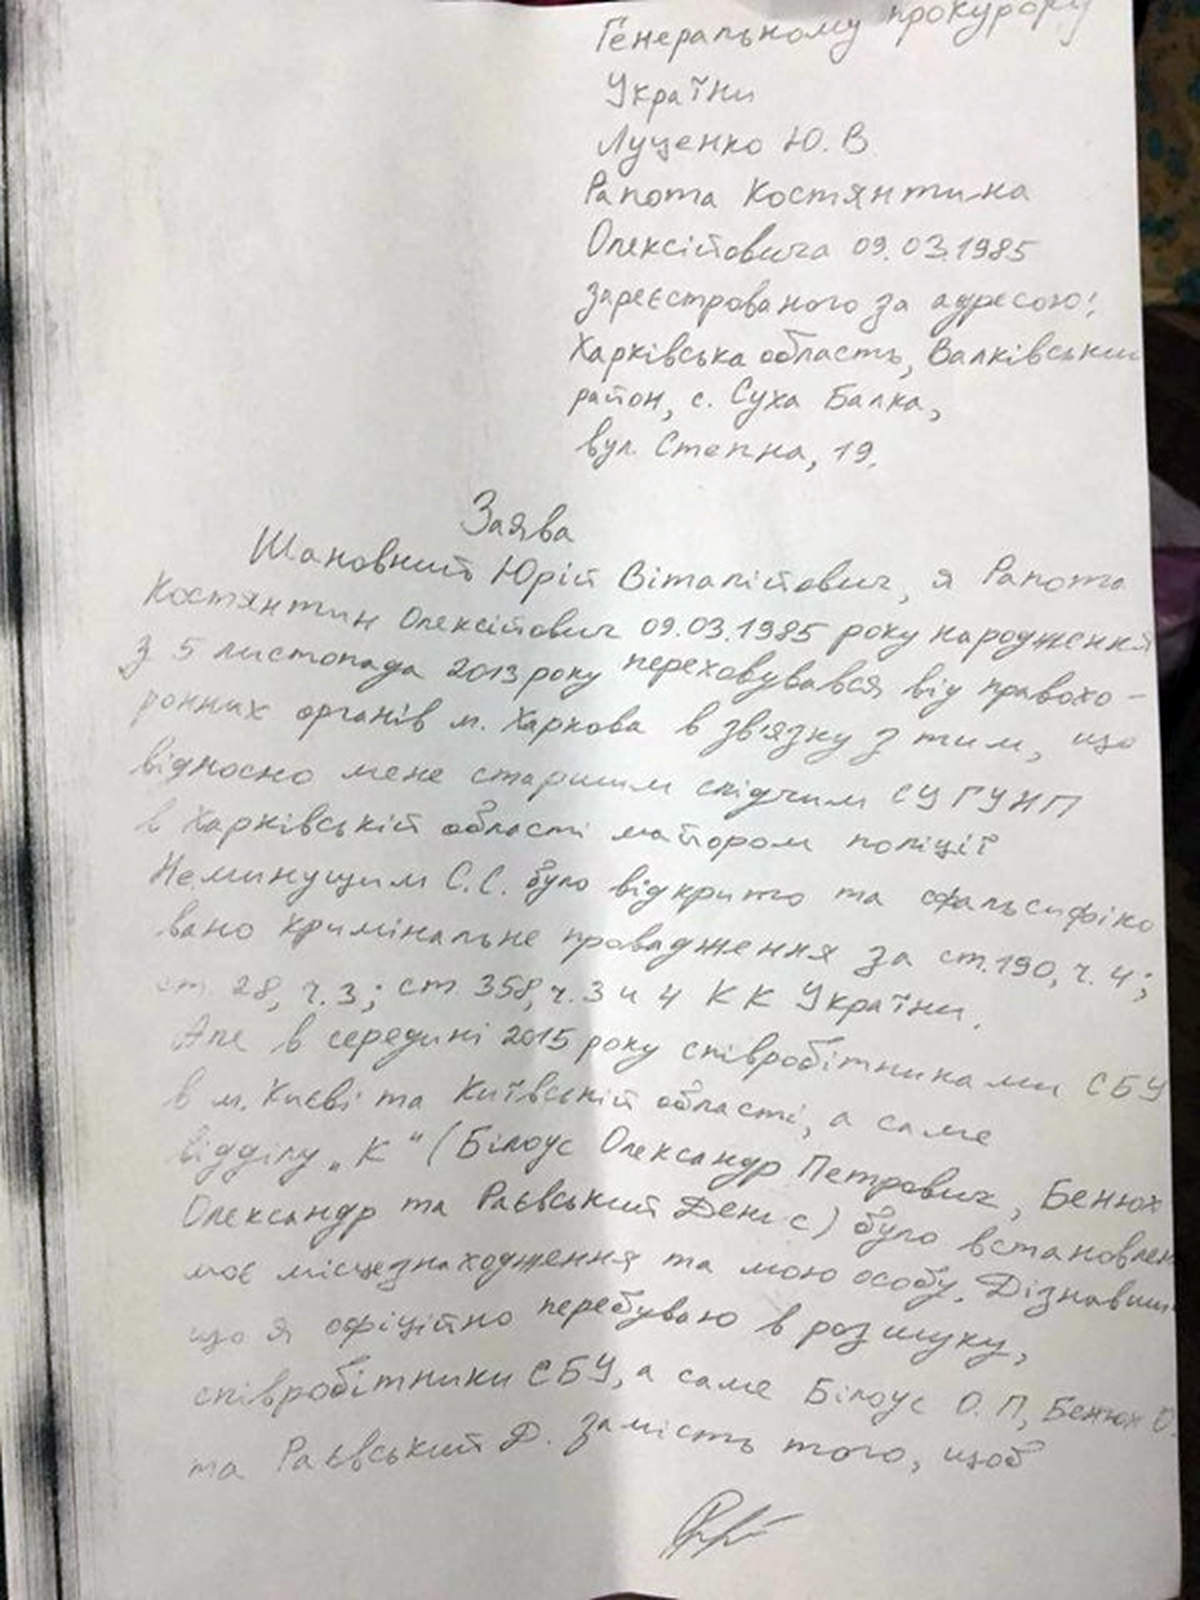 Генеральному прокурору
України
Луценко Ю. В
Рапота Костянтина
Олексійовича 09.03.1985
зареєстрованого за адресою:
Харківська область, Валківський
район, с. Суха Балка,
вул. Степна, 19.
Заява
Шановний Юрій Віталійович, я Рапота
Костянтин Олексійович 09.03.1985 року народження
з 5 листопада 2013 року переховувався від правохо-
ронних органів м. Харкова в зв'язку з тим, що
відносно мене старшим слідчим СУ ГУНП
в Харківській області майором поліції
Неминущим С.С. було відкрито та сфальсифіко
вано кримінальне провадження за ст.190, ч. 4;
ст. 28, ч.3; ст. 358, ч.3 и 4 КК України.
Але в середині 2015 року співробітниками СБУ
в м. Києві та Київській області, а саме
відділу „К“ (Білоус Олександр Петрович, Бенюх
Олександр та Раєвський Денис) було встановлен
моє місцезнаходження та мою особу. Дізнавши
що я офіційно перебуваю в розшуку,
співробітники СБУ, а саме Білоус О. П, Бенюх О.
та Раєвський Д. замість того, щоб